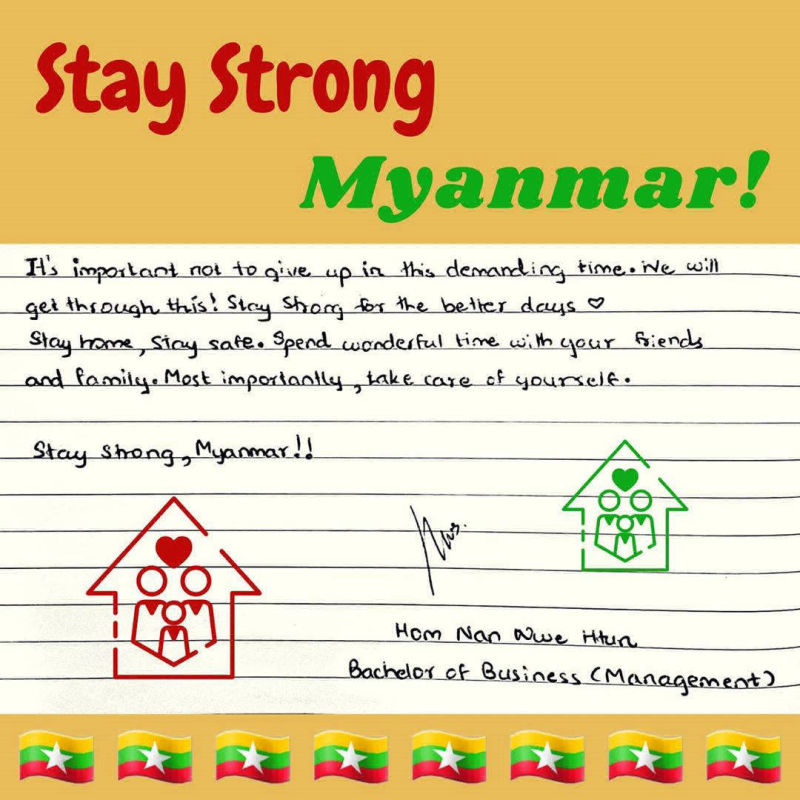 Stay Strong
Myanmar!
It's important not to give up in this demanding time. We will
get through this! Stay strong for the better days ♡
Stay home, stay safe. Spend wonderful time with your friends
and family. Most importantly, take care of yourself.
Stay strong, Myanmar!!
Hom Nan Nwe Htun
Bachelor of Business (Management)